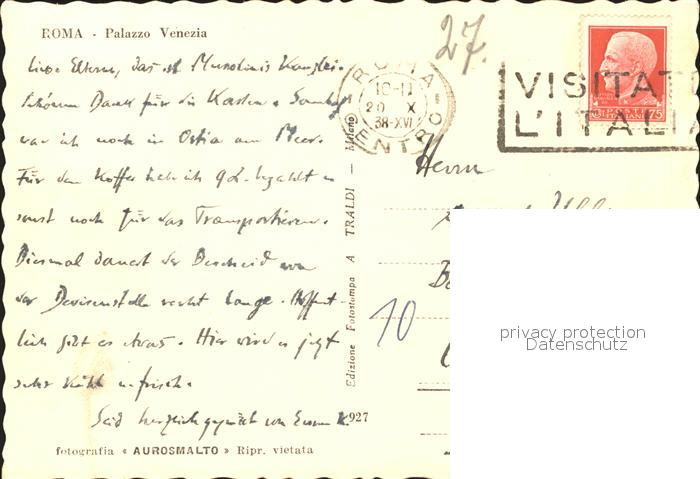 ROMA - Palazzo Venezia
27.
Liebe Eltern, das ist Mussolinis Kanzlei.
Schönen Dank für die Karten. Sonntag
war ich noch in Ostia am Meer.
Für den Koffer hab ich 92.- bezahlt u
sonst noch für das Transportieren.
Diesmal dauert der Bescheid von
der Devisenstelle recht lange. Hoffent-
lich gibt es etwas. Hier wird es jetzt
sehr kühl u. frisch.
Seid herzlich gegrüßt von
927
fotografia « AUROSMALTO » Ripr. vietata
Edizione Fotostampa A TRALDI - Milano
ROMA
CENTRO
10-11
20 X
38-XVI
VISITAT
L'ITALIA
POSTE
ITALIANE
75
Herrn
10
privacy protection
Datenschutz